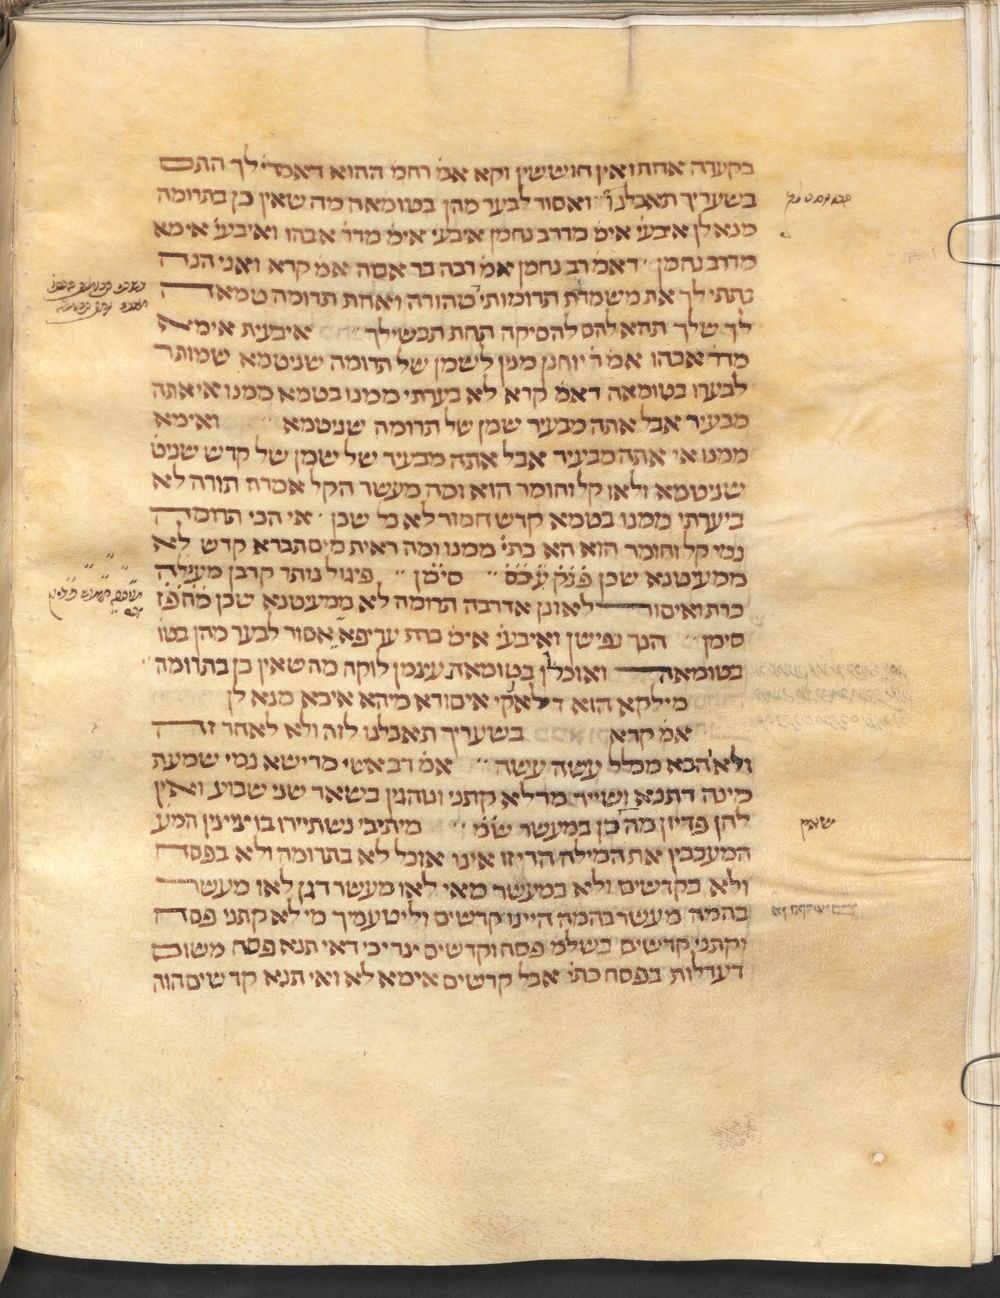 בקערה אחת ואין חוששין וקא אמ׳ רחמ׳ ההוא דאמרי לך התם
בשעריך תאכלנו ואסור לבער מהן בטומאה מה שאין כן בתרומה
מנא לן איבעי׳ אימ׳ מדרב נחמן איבעי׳ אימ׳ מדר׳ אבהו ואיבעי׳ אימא
מדרב נחמן דאמ׳ רב נחמן אמ׳ רבה בר אסה אמ׳ קרא ואני הנה
נתתי לך את משמרת תרומותי טהורה ואחת תרומה טמאה
לך שלך תהא להם להסיקה תחת תבשילך איבעית אימא
מדר׳ אבהו אמ׳ ר׳ יוחנן מנין לשמן של תרומה שניטמא שמותר
לבערו בטומאה דאמ׳ קרא לא בערתי ממנו בטמא ממנו אי אתה
מבעיר אבל אתה מבעיר שמן של תרומה שניטמא ואימא
ממנו אי אתה מבעיר אבל אתה מבעיר של שמן של קדש שניט
שניטמא ולאו קל וחומר הוא ומה מעשר הקל אמרה תורה לא
ביערתי ממנו בטמא קדש חמור לא כל שכן אי הכי תרומה
נמי קל וחומר הוא הא כתי׳ ממנו ומה ראית מיסתברא קדש לא
ממעיטנא שכן פ֗נ֗ק֗ ע֗כ֗ס֗ סימ֗ן פיגול נותר קרבן מעילה
כרת ואיסור לאונן אדרבה תרומה לא ממעטנא שכן מ֗ח֗פ֗ז֗
סימן הנך נפישן ואיבעי׳ אימ׳ כרת עדיפא אסור לבער מהן בטו
בטומאה ואוכלן בטומאת עצמן לוקה מה שאין כן בתרומה
מילקא הוא דלא לקי איסורא מיהא איכא מנא לן
אמ׳ קרא בשעריך תאכלנו לזה ולא לאחר זה
ולא הבא מכלל עשה עשה אמ׳ רב אשי מרישא נמי שמעת
מינה דתנא ושייר מדלא קתני ונוהגין בשאר שני שבוע ואין
להן פדיון מה כן במעשר ש֗מ֗ מיתיבי נשתיירו בו ציצין המע
המעכבין את המילה הרי זו אינו אוכל לא בתרומה ולא בפסח
ולא בקדשים ולא במעשר מאי לאו מעשר דגן לאו מעשר
בהמה מעשר בהמה היינו קדשים וליטעמיך מי לא קתני פסח
וקתני קדשים בשלמ׳ פסח וקדשים צריכי דאי תנא פסח משום
דערלות בפסח כתי׳ אבל קדשים אימא לא ואי תנא קדשים הוה